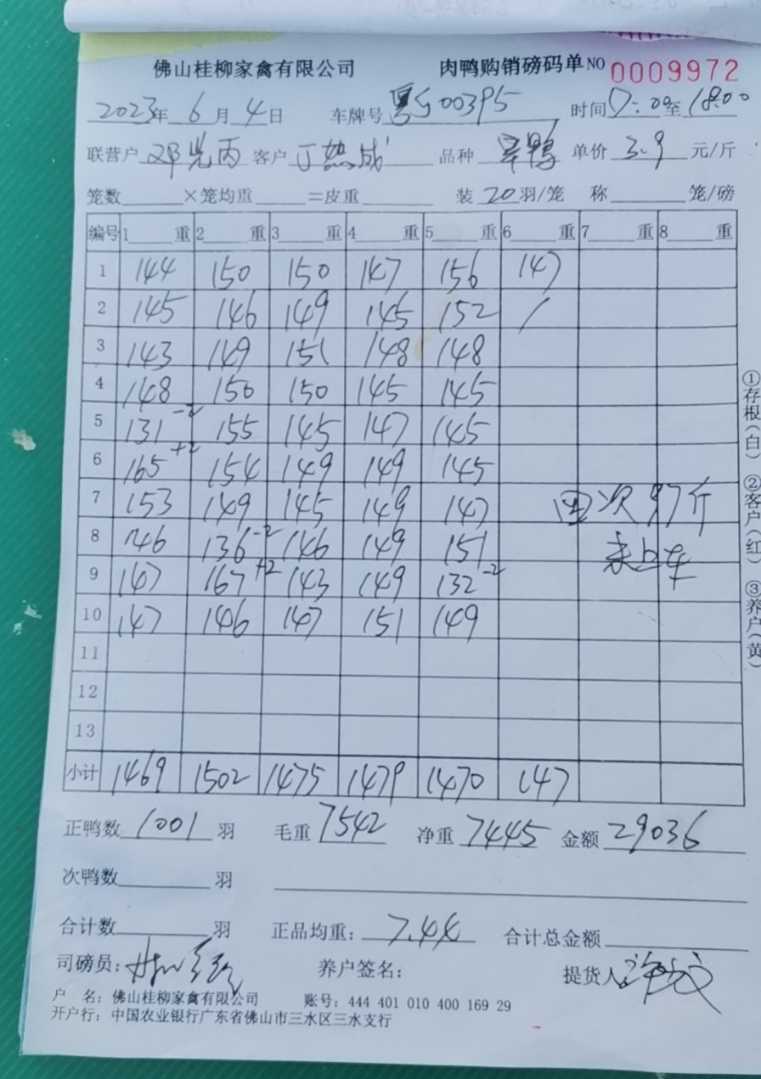 佛山桂柳家禽有限公司 肉鸭购销磅码单 NO 0009972
2023年 6 月 4 日 车牌号 粤J00395 时间 7:00 至 18:00
联营户 邓光丙 客户 丁 成 品种 旱鸭 单价 3.9 元/斤
笼数 ×笼均重 =皮重 装 20 羽/笼 称 笼/磅
编号 1 重 2 重 3 重 4 重 5 重 6 重 7 重 8 重
1 144 150 150 147 156 147
2 145 146 149 145 152 /
3 143 149 151 148 148
4 148 150 150 145 145
5 131 -2 155 145 147 145
6 165 +2 154 149 149 145
7 153 149 145 149 147 四次97斤
8 146 136 -2 146 149 151 未上车
9 147 167 +2 143 149 132 -2
10 147 146 147 151 149
11
12
13
小计 1469 1502 1475 1479 1470 147
正鸭数 1001 羽 毛重 7542 净重 7445 金额 29036
次鸭数 羽
合计数 羽 正品均重: 7.44 合计总金额
司磅员: 养户签名: 提货人:
户 名: 佛山桂柳家禽有限公司 账号: 444 401 010 400 169 29
开户行: 中国农业银行广东省佛山市三水区三水支行
①存根(白) ②客户(红) ③养户(黄)